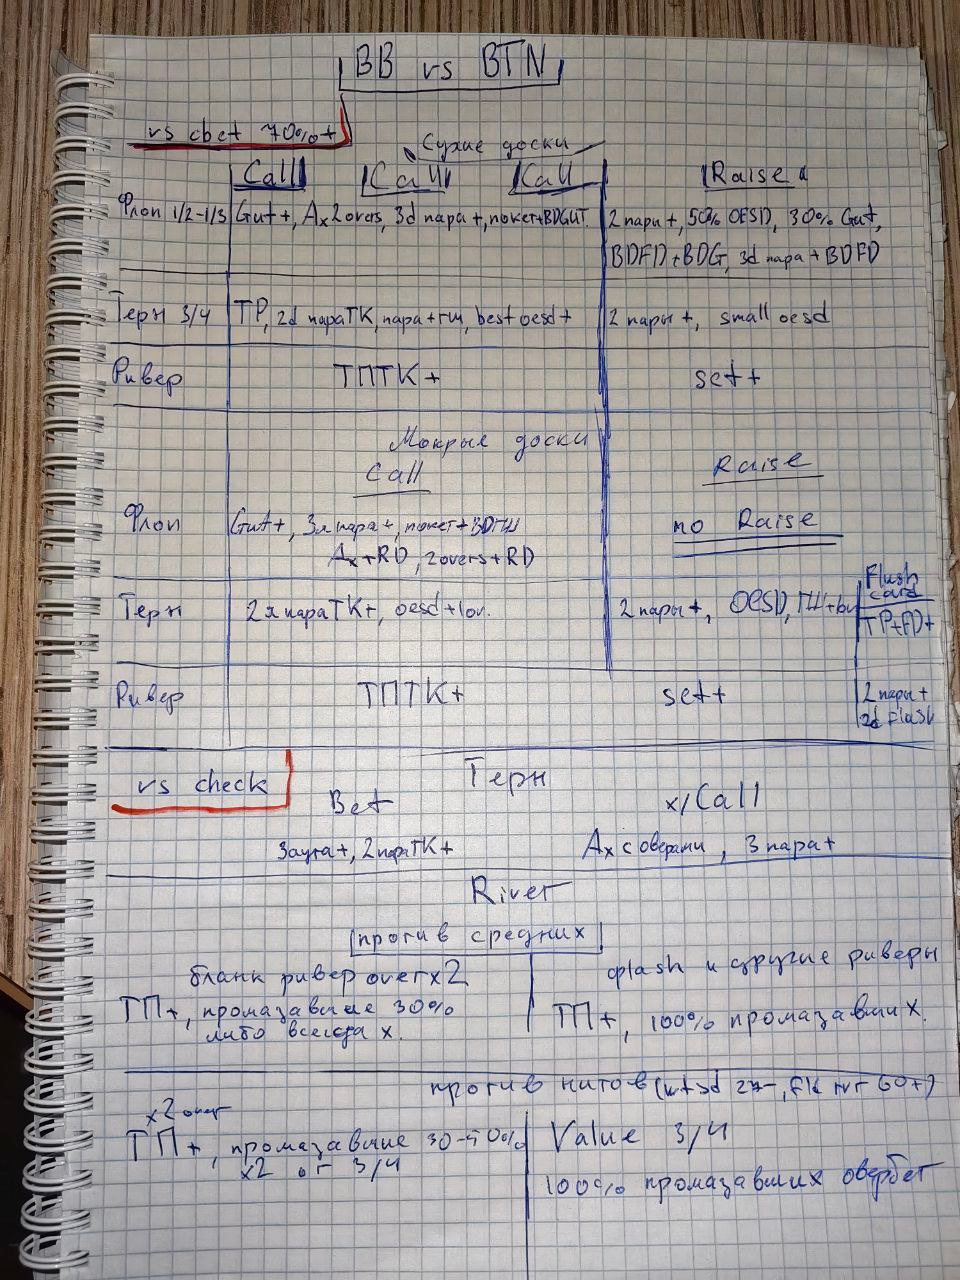 BB vs BTN
vs cbet 70%+
Сухие доски
Call Call Call Raise
Флоп 1/2-1/3 Gut+, Ax 2overs, 3d пара+, покет+BDGUT. 2 пары+, 50% OESD, 30% Gut,
BDFD+BDG, 3d пара+BDFD
Терн 3/4 TP, 2d параТК, пара+гш, best oesd+ 2 пары+, small oesd
Ривер ТПТК+ set+
Мокрые доски
Call Raise
Флоп Gut+, 3я пара+, покет+BDГШ no Raise
Ax+RD, 2overs+RD
Flush card
Терн 2я параТК+, oesd+1ov. 2 пары+, OESD, ГШ+ TP+FD+
Ривер ТПТК+ set+ 2 пары+
2d Flash
vs check Терн
Bet x/Call
3аута+, 2параТК+ Ax с оверами, 3 пара+
River
против средних
бланк ривер over x2 flash и другие риверы
ТП+, промазавшие 30% ТП+, 100% промазавших.
либо всегда x.
против нитов (wtsd 27-, fld tvr 60+)
x2 over
ТП+, промазавшие 30-50% Value 3/4
x2 от 3/4
100% промазавших овербет